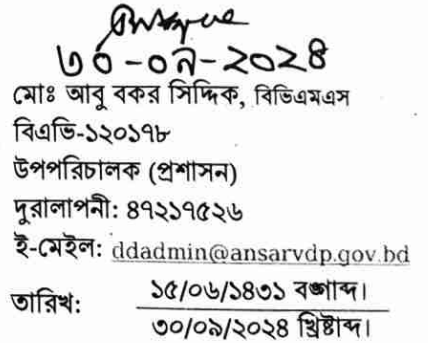 ৩০-০৯-২০২৪
মোঃ আবু বকর সিদ্দিক, বিভিএমএস
বিএভি-১২০১৭৮
উপপরিচালক (প্রশাসন)
দুরালাপনী: ৪৭২১৭৫২৬
ই-মেইল: ddadmin@ansarvdp.gov.bd
তারিখ: ১৫/০৬/১৪৩১ বঙ্গাব্দ।
৩০/০৯/২০২৪ খ্রিষ্টাব্দ।